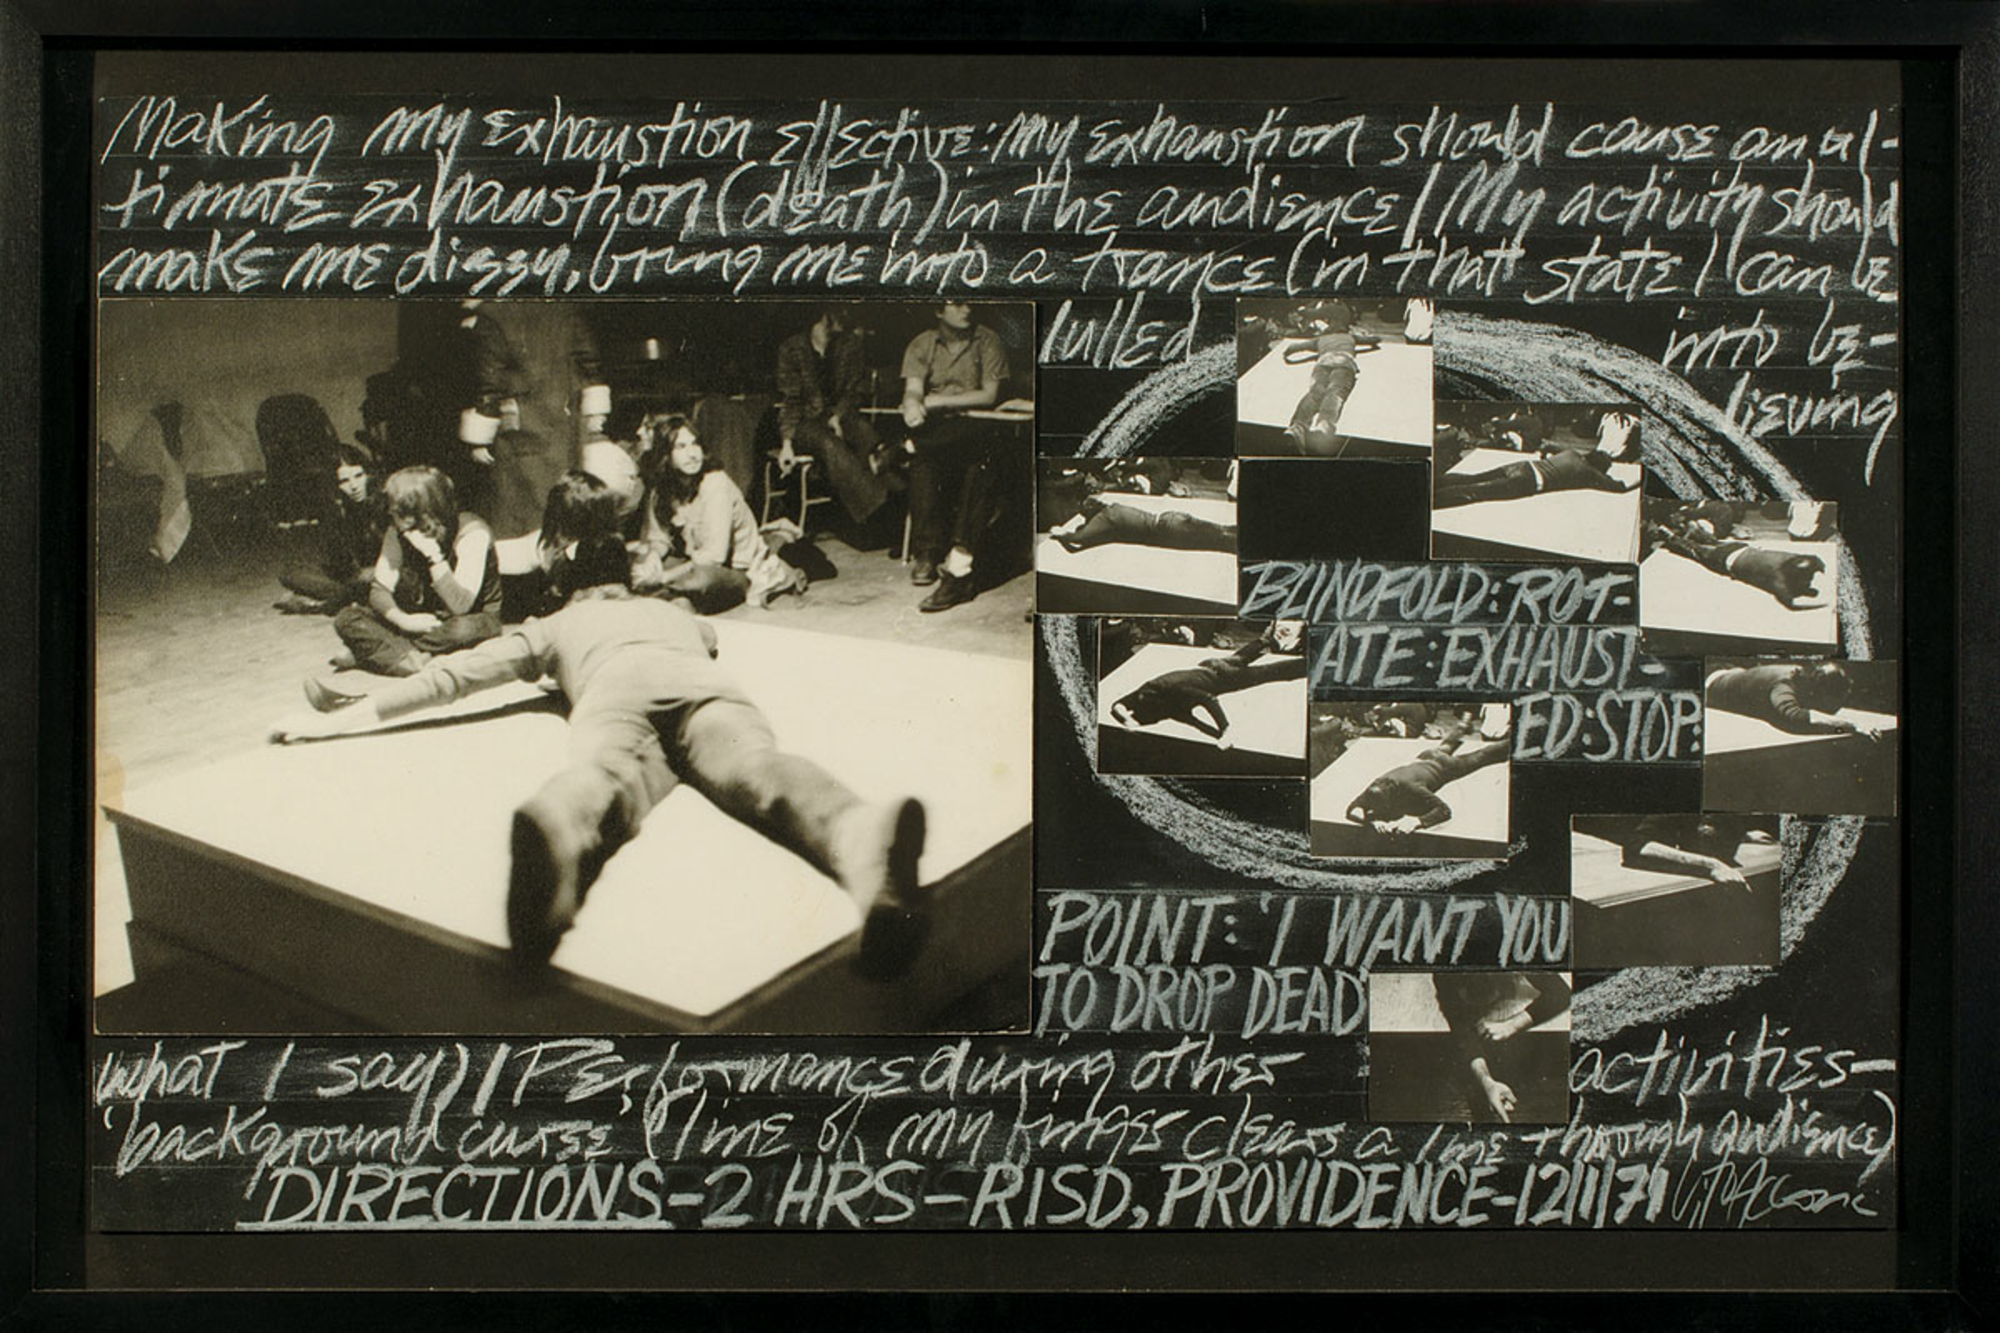 Making my exhaustion effective: my exhaustion should cause an ul-
timate exhaustion (death) in the audience / My activity should
make me dizzy, bring me into a trance (in that state I can be
lulled into be-
lieving
BLINDFOLD: ROT-
ATE: EXHAUST-
ED: STOP:
POINT: 'I WANT YOU
TO DROP DEAD'
what I say) / Performance during other activities—
'background curse' (line of my finger clears a line through audience)
DIRECTIONS-2 HRS-RISD, PROVIDENCE-12/1/71 Vito Acconci